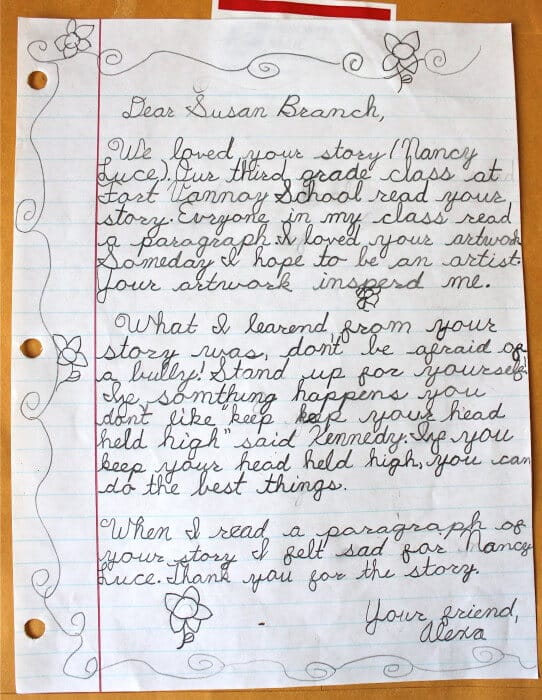 Dear Susan Branch,
We loved your story (Nancy
Luce). Our third grade class at
Fort Vannoy School read your
story. Evryone in my class read
a paragraph. I loved your artwork
Someday I hope to be an artist.
Your artwork insperd me.
What I learend from your
story was, don't be afraid of
a bully! Stand up for yourself.
If somthing happens you
dont like "keep keep your head
held high" said Kennedy. If you
keep your head held high, you can
do the best things.
When I read a paragraph of
your story I felt sad for Nancy
Luce. Thank you for the story.
Your friend,
Alexa